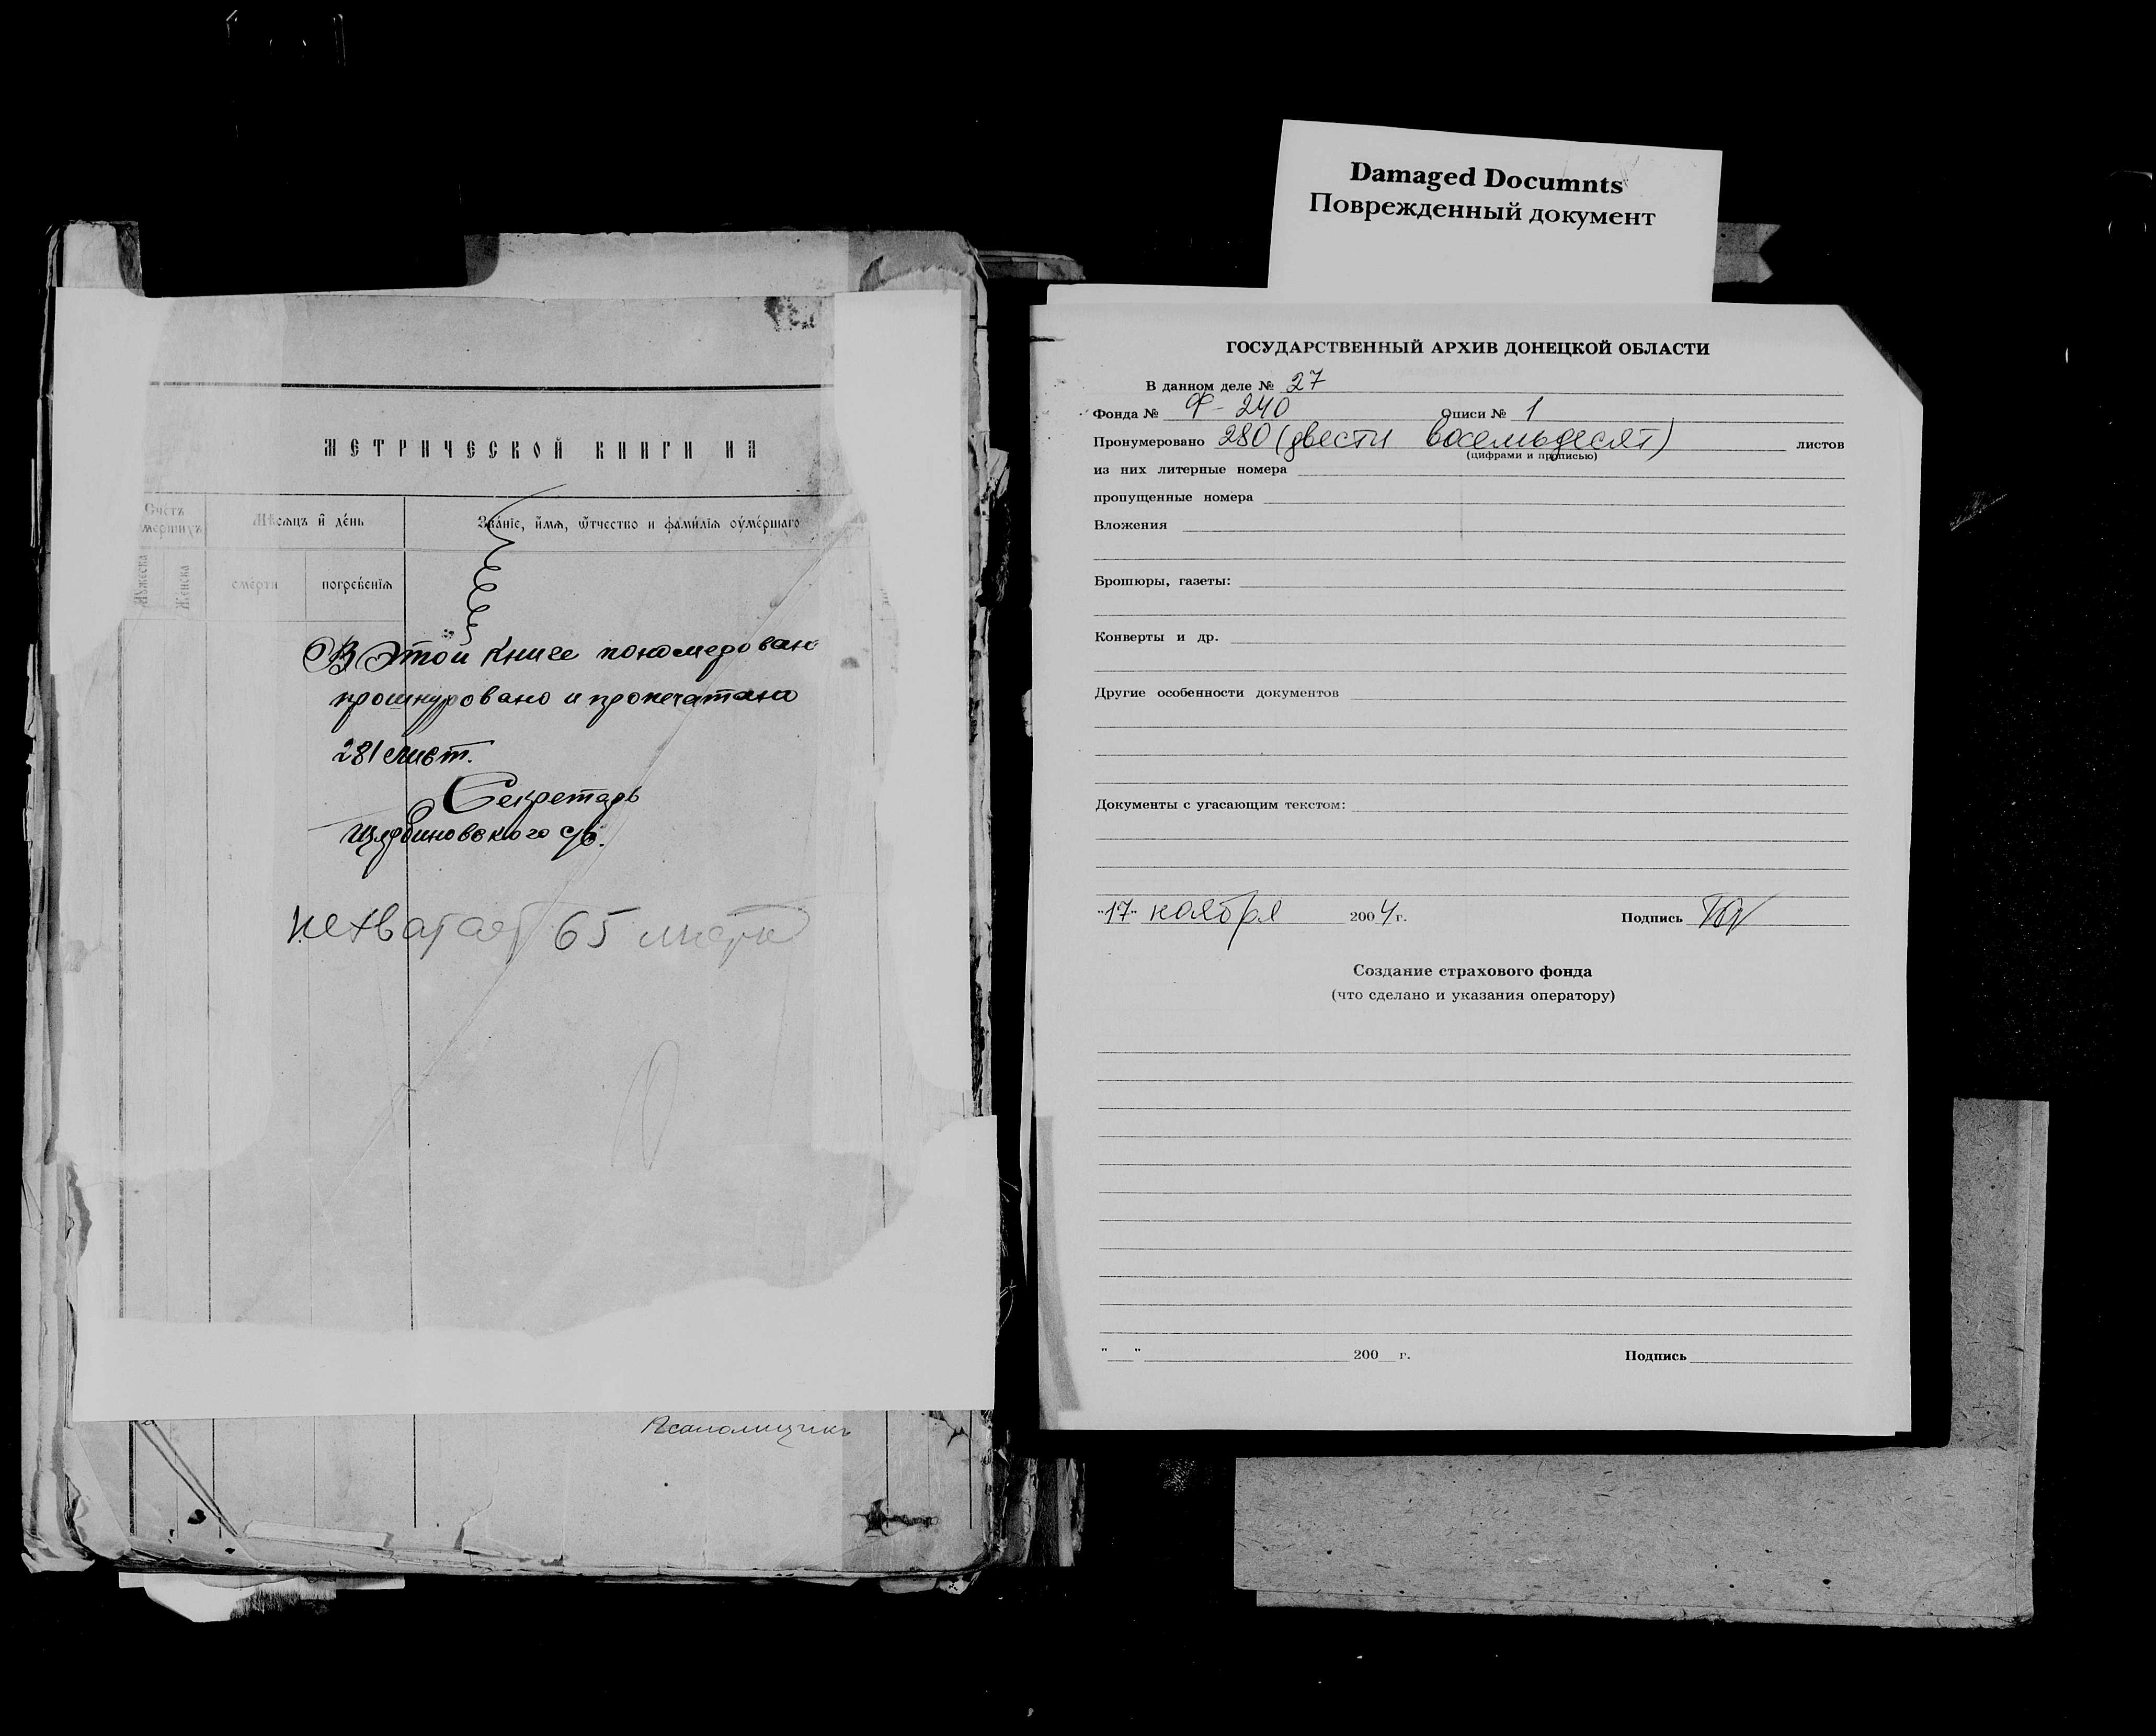 МЕТРИЧЕСКОЙ КНИГИ НА
Счетъ
умершихъ
Мѣсяцъ и҆ де́нь
Зва́нїе, и҆́мѧ, ѻ҆́тчество и фами́лїѧ оу҆ме́ршаго
Мужеска
Женска
смерти
погребе́нїѧ
В этой книге пономеровано
прошнуровано и пропечатано
281 лист.
Секретарь
Щербиновского с/с.
нехватает 65 листа
Псаломщикъ
Damaged Documnts
Поврежденный документ
ГОСУДАРСТВЕННЫЙ АРХИВ ДОНЕЦКОЙ ОБЛАСТИ
В данном деле № 27
Фонда № Ф-240 Описи № 1
Пронумеровано 280 (двести восемьдесят) листов
(цифрами и прописью)
из них литерные номера
пропущенные номера
Вложения
Брошюры, газеты:
Конверты и др.
Другие особенности документов
Документы с угасающим текстом:
"17" ноября 2004 г. Подпись
Создание страхового фонда
(что сделано и указания оператору)
"__" 200__ г. Подпись